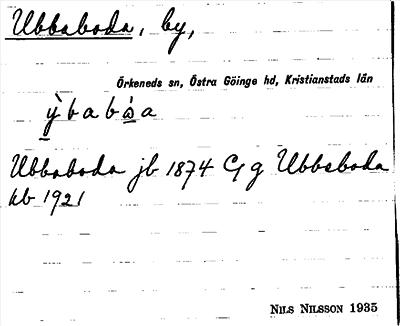 Ubbaboda, by,
Örkeneds sn, Östra Göinge hd, Kristianstads län
ỳbabåa
Ubbaboda jb 1874 Gg Ubbaboda
kb 1921
NILS NILSSON 1935